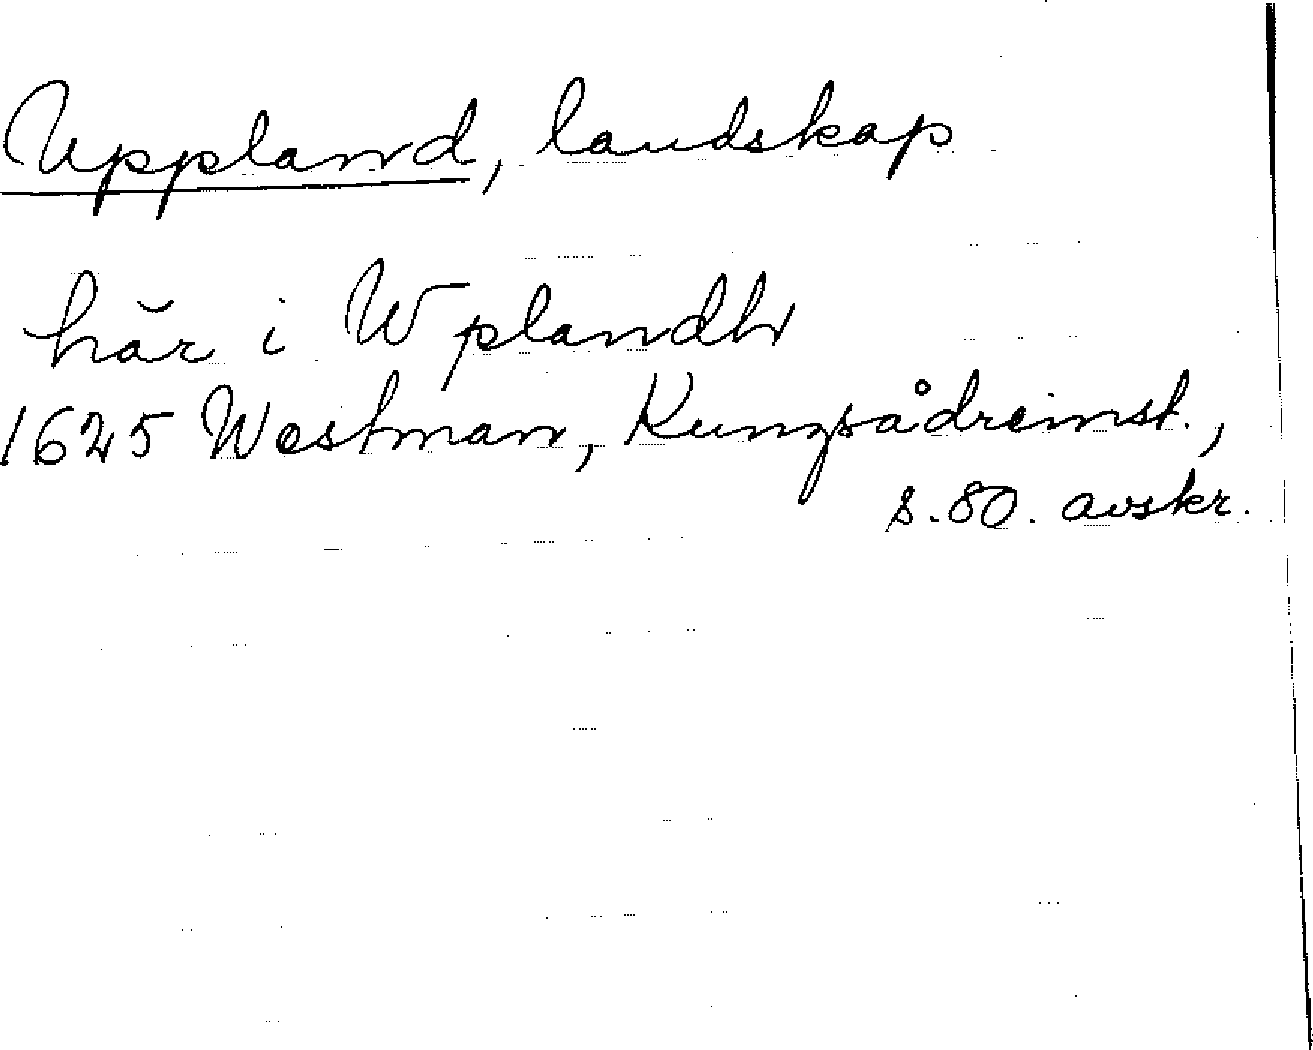 Uppland, landskap
här i Wplandh
1625 Westman, Kungsådreinst.,
s. 80. avskr.